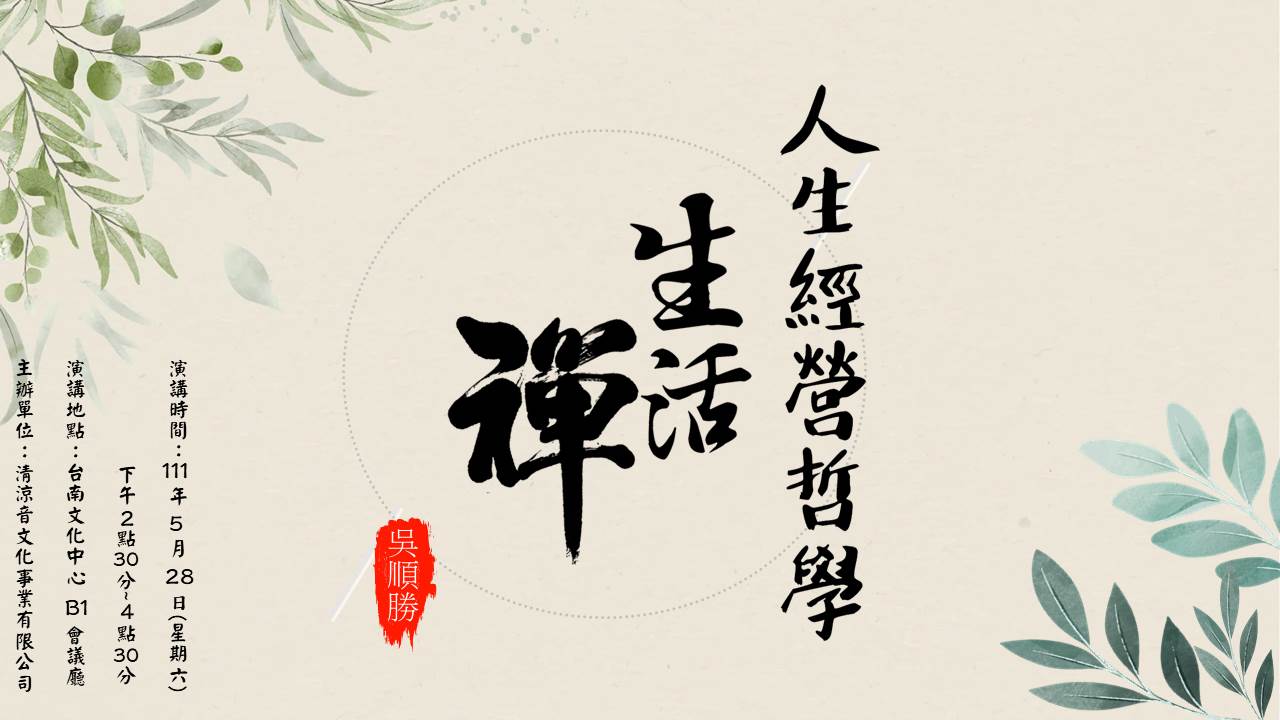 人生經營哲學
生活
禪
吳順勝
演講時間：111年5月28日(星期六)
下午2點30分~4點30分
演講地點：台南文化中心 B1 會議廳
主辦單位：清涼音文化事業有限公司